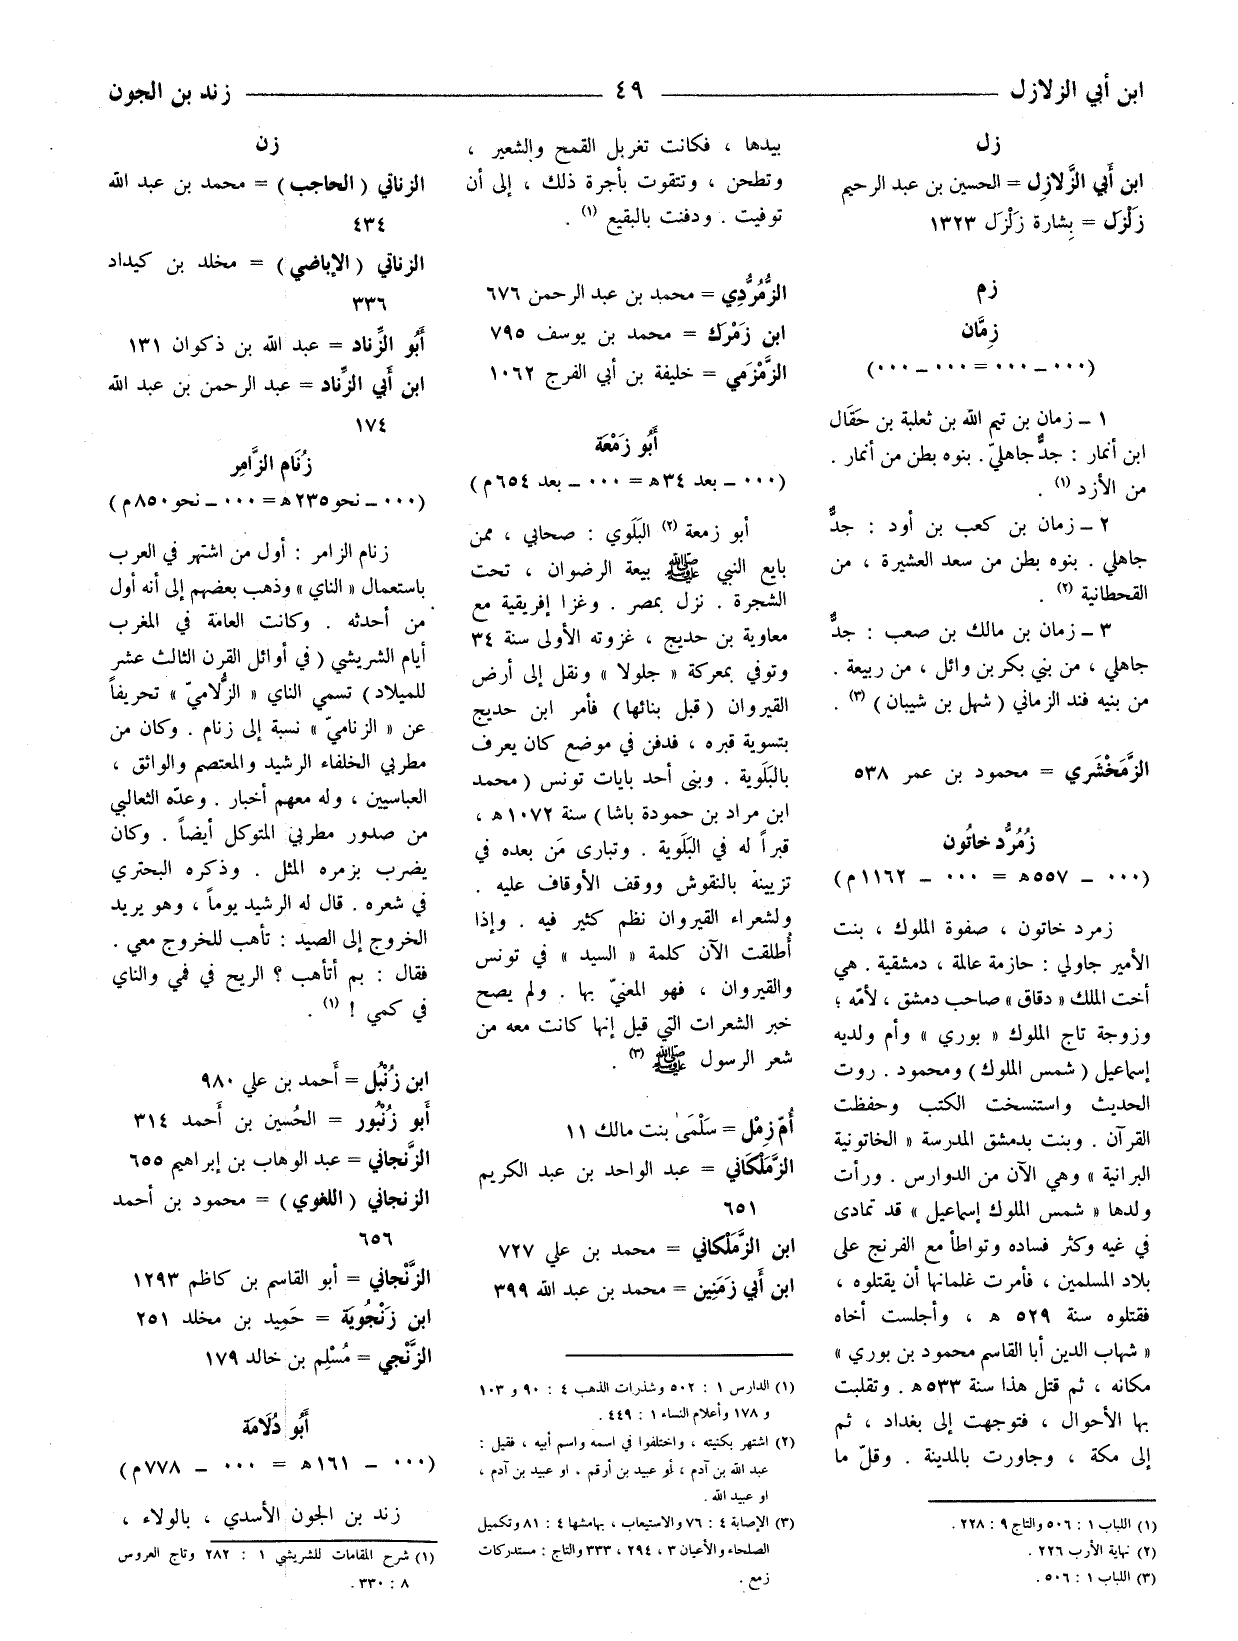 ابن أبي الزلازل ٤٩ زند بن الجون
زل
ابن أبي الزَّلازِل = الحسين بن عبد الرحيم
زَلْزَل = بِشارة زَلْزَل ١٣٢٣
زم
زِمَّان
(٠٠٠ـ ٠٠٠ = ٠٠٠ ـ ٠٠٠)
١ ـ زمان بن تيم الله بن ثعلبة بن حَقَال
ابن أنمار : جدٌّ جاهليّ . بنوه بطن من أنمار .
من الأزد (١) .
٢ ـ زمان بن كعب بن أود : جدٌّ
جاهلي . بنوه بطن من سعد العشيرة ، من
القحطانية (٢) .
٣ ـ زمان بن مالك بن صعب : جدٌّ
جاهلي ، من بني بكر بن وائل ، من ربيعة .
من بنيه فند الزماني ( شهل بن شيبان ) (٣) .
الزَّمَخْشَري = محمود بن عمر ٥٣٨
زُمُرُّد خاتُون
(٠٠٠ ـ ٥٥٧هـ = ٠٠٠ ـ ١١٦٢م)
زمرد خاتون ، صفوة الملوك ، بنت
الأمير جاولي : حازمة عالمة ، دمشقية . هي
أخت الملك « دقاق » صاحب دمشق ، لأمّه ؛
وزوجة تاج الملوك « بوري » وأم ولديه
إسماعيل ( شمس الملوك ) ومحمود . روت
الحديث واستنسخت الكتب وحفظت
القرآن . وبنت بدمشق المدرسة « الخاتونية
البرانية » وهي الآن من الدوارس . ورأت
ولدها « شمس الملوك إسماعيل » قد تمادى
في غيه وكثر فساده وتواطأ مع الفرنج على
بلاد المسلمين ، فأمرت غلمانها أن يقتلوه ،
فقتلوه سنة ٥٢٩ هـ ، وأجلست أخاه
« شهاب الدين أبا القاسم محمود بن بوري »
مكانه ، ثم قتل هذا سنة ٥٣٣هـ . وتقلبت
بها الأحوال ، فتوجهت إلى بغداد ، ثم
إلى مكة ، وجاورت بالمدينة . وقلّ ما
(١) اللباب ١ : ٥٠٦ والتاج ٩ : ٢٢٨ .
(٢) نهاية الأرب ٢٢٦ .
(٣) اللباب ١ : ٥٠٦ .
بيدها ، فكانت تغربل القمح والشعير ،
وتطحن ، وتتقوت بأجرة ذلك ، إلى أن
توفيت . ودفنت بالبقيع (١) .
الزُّمُرُّدِي = محمد بن عبد الرحمن ٦٧٦
ابن زَمْرَك = محمد بن يوسف ٧٩٥
الزَّمْزَمي = خليفة بن أبي الفرج ١٠٦٢
أَبُو زَمْعَة
(٠٠٠ ـ بعد ٣٤هـ = ٠٠٠ ـ بعد ٦٥٤م)
أبو زمعة (٢) البَلَوي : صحابي ، ممن
بايع النبي ﷺ بيعة الرضوان ، تحت
الشجرة . نزل بمصر . وغزا إفريقية مع
معاوية بن حديج ، غزوته الأولى سنة ٣٤
وتوفي بمعركة « جلولا » ونقل إلى أرض
القيروان ( قبل بنائها ) فأمر ابن حديج
بتسوية قبره ، فدفن في موضع كان يعرف
بالبَلَوية . وبنى أحد بايات تونس ( محمد
ابن مراد بن حمودة باشا ) سنة ١٠٧٢هـ ،
قبراً له في البَلَوية . وتبارى مَن بعده في
تزيينه بالنقوش ووقف الأوقاف عليه .
ولشعراء القيروان نظم كثير فيه . وإذا
أُطلقت الآن كلمة « السيد » في تونس
والقيروان ، فهو المعنيّ بها . ولم يصح
خبر الشعرات التي قيل إنها كانت معه من
شعر الرسول ﷺ (٣) .
أُمّ زِمْل = سَلْمَىٰ بنت مالك ١١
الزَّمْلَكَاني = عبد الواحد بن عبد الكريم
٦٥١
ابن الزَّمْلَكاني = محمد بن علي ٧٢٧
ابن أبي زَمَنِين = محمد بن عبد الله ٣٩٩
(١) الدارس ١ : ٥٠٢ وشذرات الذهب ٤ : ٩٠ و ١٠٣
و ١٧٨ وأعلام النساء ١ : ٤٤٩ .
(٢) اشتهر بكنيته ، واختلفوا في اسمه واسم أبيه ، فقيل :
عبد الله بن آدم ، أو عبيد بن أرقم . او عبيد بن آدم ،
او عبيد الله .
(٣) الإصابة ٤ : ٧٦ والاستيعاب ، بهامشها ٤ : ٨١ وتكميل
الصلحاء والأعيان ٣ ، ٢٩٤ ، ٣٣٣ والتاج : مستدركات
زمع .
زن
الزناتي ( الحاجب ) = محمد بن عبد الله
٤٣٤
الزناتي ( الإباضي ) = مخلد بن كيداد
٣٣٦
أَبُو الزِّناد = عبد الله بن ذكوان ١٣١
ابن أَبي الزِّناد = عبد الرحمن بن عبد الله
١٧٤
زُنَام الزَّامِر
(٠٠٠ ـ نحو ٢٣٥هـ = ٠٠٠ ـ نحو ٨٥٠م)
زنام الزامر : أول من اشتهر في العرب
باستعمال « الناي » وذهب بعضهم إلى أنه أول
من أحدثه . وكانت العامة في المغرب
أيام الشريشي ( في أوائل القرن الثالث عشر
للميلاد ) تسمي الناي « الزُّلاميّ » تحريفاً
عن « الزناميّ » نسبة إلى زنام . وكان من
مطربي الخلفاء الرشيد والمعتصم والواثق ،
العباسيين ، وله معهم أخبار . وعدّه الثعالبي
من صدور مطربي المتوكل أيضاً . وكان
يضرب بزمره المثل . وذكره البحتري
في شعره . قال له الرشيد يوماً ، وهو يريد
الخروج إلى الصيد : تأهب للخروج معي .
فقال : بم أتأهب ؟ الريح في فمي والناي
في كمي ! (١) .
ابن زُنْبُل = أَحمد بن علي ٩٨٠
أَبو زُنْبُور = الحُسين بن أَحمد ٣١٤
الزَّنْجاني = عبد الوهاب بن إبراهيم ٦٥٥
الزنجاني ( اللغوي ) = محمود بن أحمد
٦٥٦
الزَّنْجاني = أبو القاسم بن كاظم ١٢٩٣
ابن زَنْجُويَة = حَمِيد بن مخلد ٢٥١
الزَّنْجي = مُسْلِم بن خالد ١٧٩
أَبُو دُلَامَة
(٠٠٠ ـ ١٦١هـ = ٠٠٠ ـ ٧٧٨م)
زند بن الجون الأسدي ، بالولاء ،
(١) شرح المقامات للشريشي ١ : ٢٨٢ وتاج العروس
٨ : ٣٣٠ .